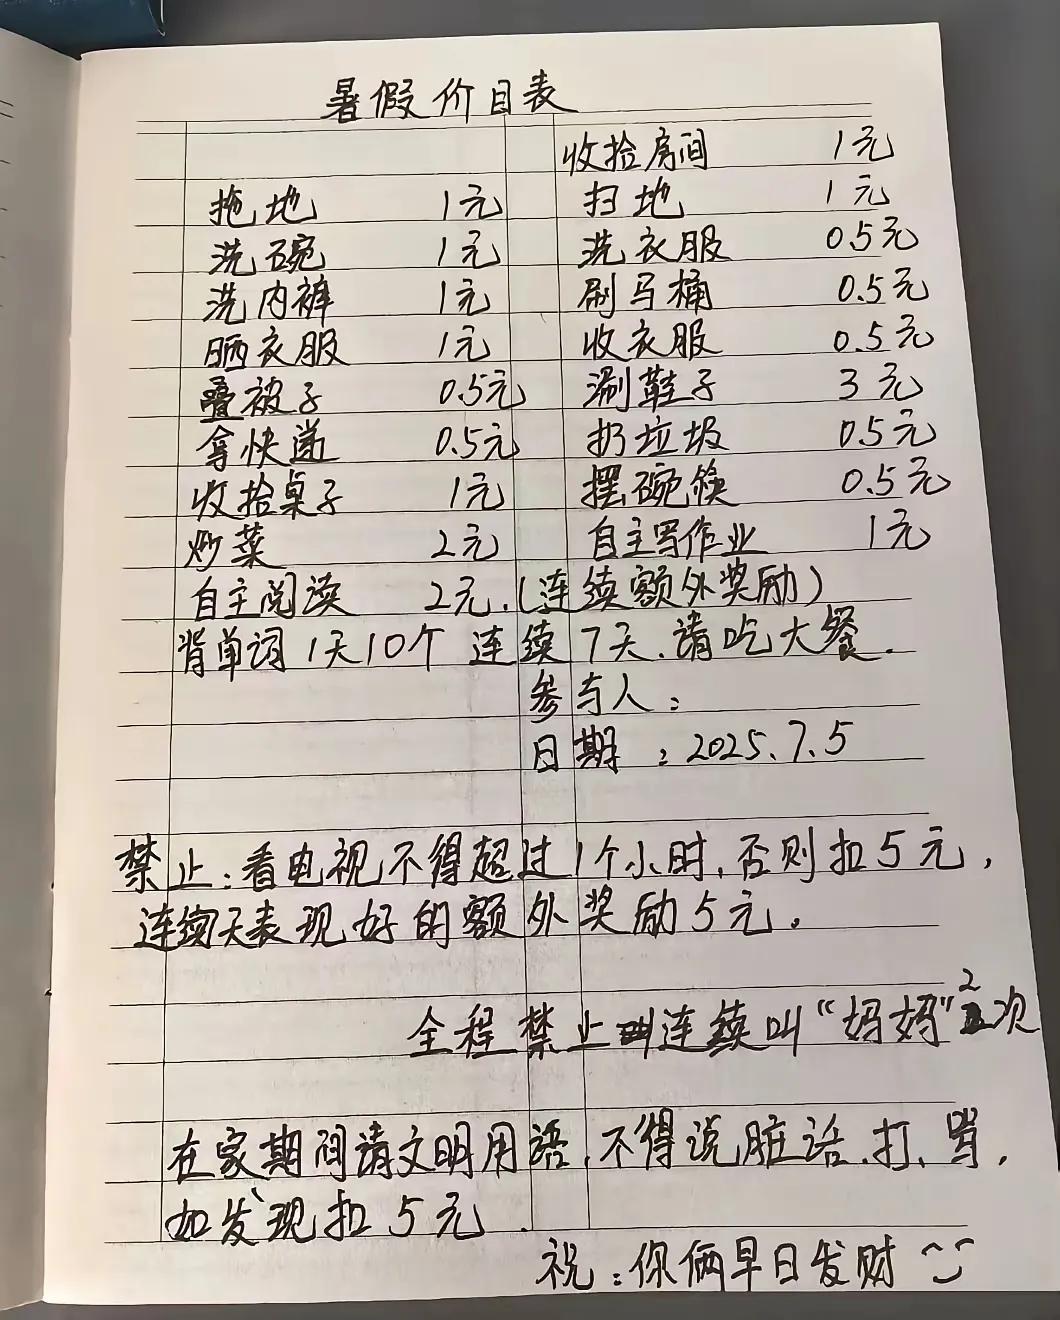 暑假价目表
收拾房间 1元
拖地 1元 扫地 1元
洗碗 1元 洗衣服 0.5元
洗内裤 1元 刷马桶 0.5元
晒衣服 1元 收衣服 0.5元
叠被子 0.5元 涮鞋子 3元
拿快递 0.5元 扔垃圾 0.5元
收拾桌子 1元 摆碗筷 0.5元
炒菜 2元 自主写作业 1元
自主阅读 2元.(连续额外奖励)
背单词1天10个 连续7天.请吃大餐.
参与人:
日期:2025.7.5
禁止:看电视不得超过1个小时,否则扣5元,
连续天表现好的额外奖励5元.
全程禁止连续叫“妈妈”2次
在家期间请文明用语,不得说脏话.打、骂,
如发现扣5元.
祝:你俩早日发财